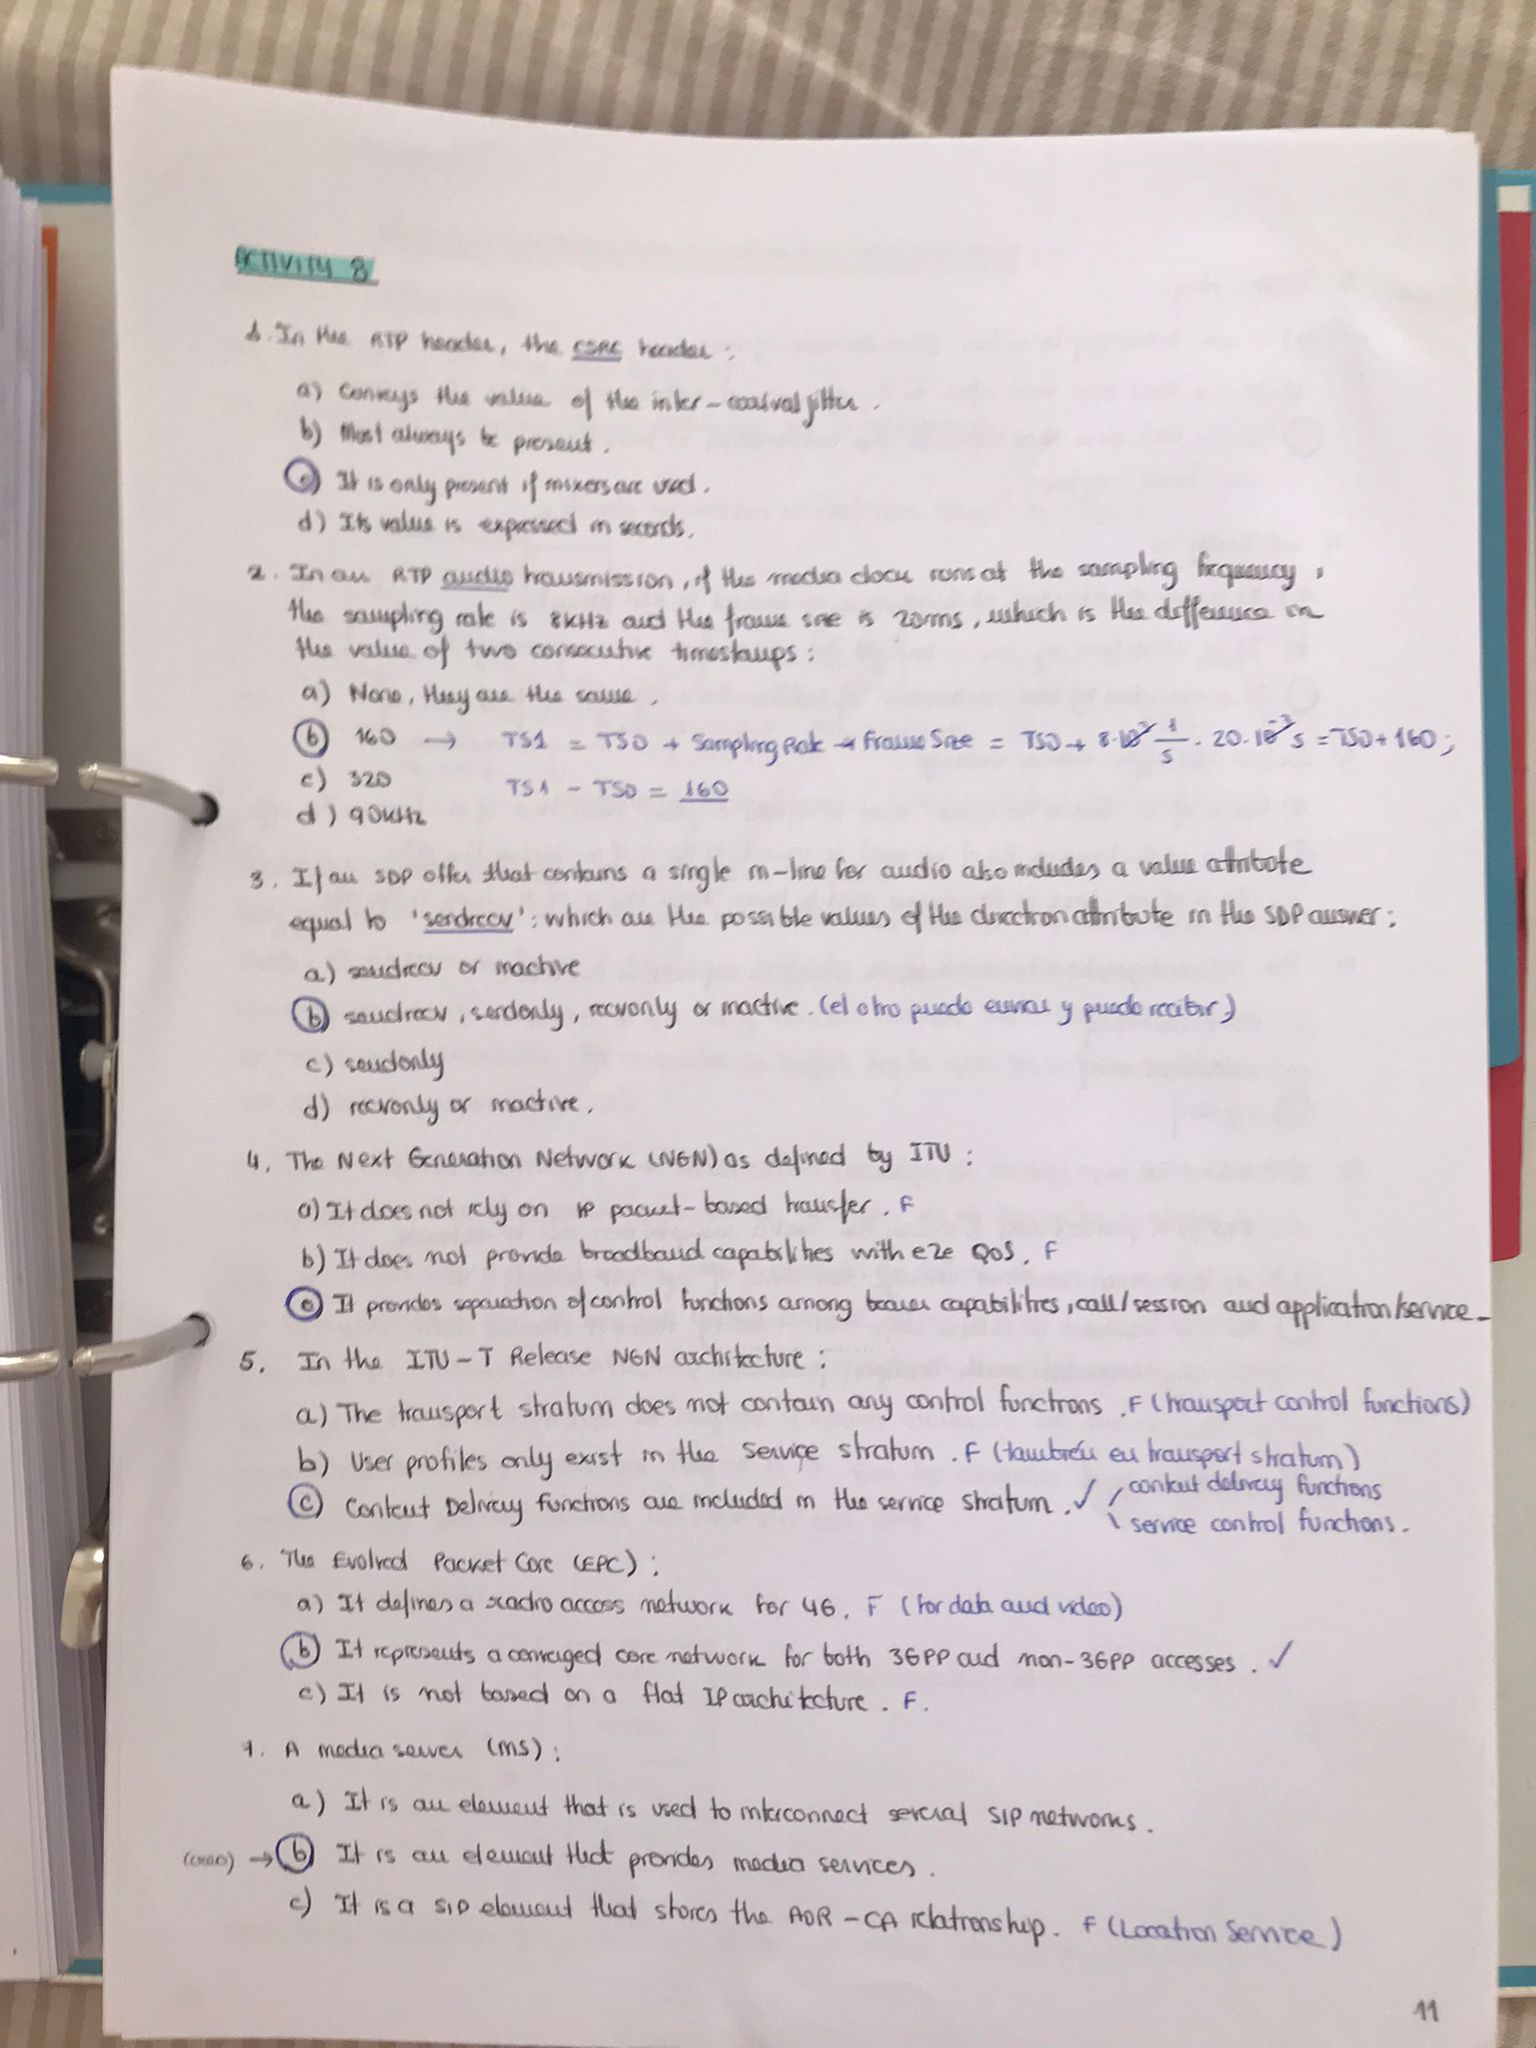 ACTIVITY 8
1. In the RTP header, the CSRC header:
a) Conveys the value of the inter-arrival jitter.
b) Must always be present.
c) It is only present if mixers are used.
d) Its value is expressed in seconds.
2. In an RTP audio transmission, if the media clock runs at the sampling frequency,
the sampling rate is 8kHz and the frame size is 20ms, which is the difference in
the value of two consecutive timestamps:
a) None, they are the same.
b) 160 → TS1 = TS0 + Sampling Rate * Frame Size = TS0 + 8·10³ 1/s · 20·10⁻³ s = TS0 + 160;
c) 320 TS1 - TS0 = 160
d) 90kHz
3. If an SDP offer that contains a single m-line for audio also includes a value attribute
equal to 'sendrecv': which are the possible values of the direction attribute in the SDP answer:
a) sendrecv or inactive
b) sendrecv, sendonly, recvonly or inactive. (el otro puede enviar y puede recibir)
c) sendonly
d) recvonly or inactive.
4. The Next Generation Network (NGN) as defined by ITU:
a) It does not rely on IP packet-based transfer. F
b) It does not provide broadband capabilities with e2e QoS. F
c) It provides separation of control functions among bearer capabilities, call/session and application/service-
5. In the ITU-T Release NGN architecture:
a) The transport stratum does not contain any control functions. F (transport control functions)
b) User profiles only exist in the service stratum. F (también en transport stratum)
c) Content Delivery functions are included in the service stratum. ✓ content delivery functions
service control functions.
6. The Evolved Packet Core (EPC):
a) It defines a radio access network for 4G. F (for data and video)
b) It represents a converged core network for both 3GPP and non-3GPP accesses. ✓
c) It is not based on a flat IP architecture. F.
7. A media server (MS):
a) It is an element that is used to interconnect several SIP networks.
(creo) → b) It is an element that provides media services.
c) It is a SIP element that stores the AOR-CA relationship. F (Location Service)
11